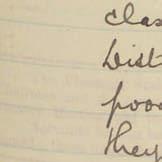 clas
Dist
poor
they